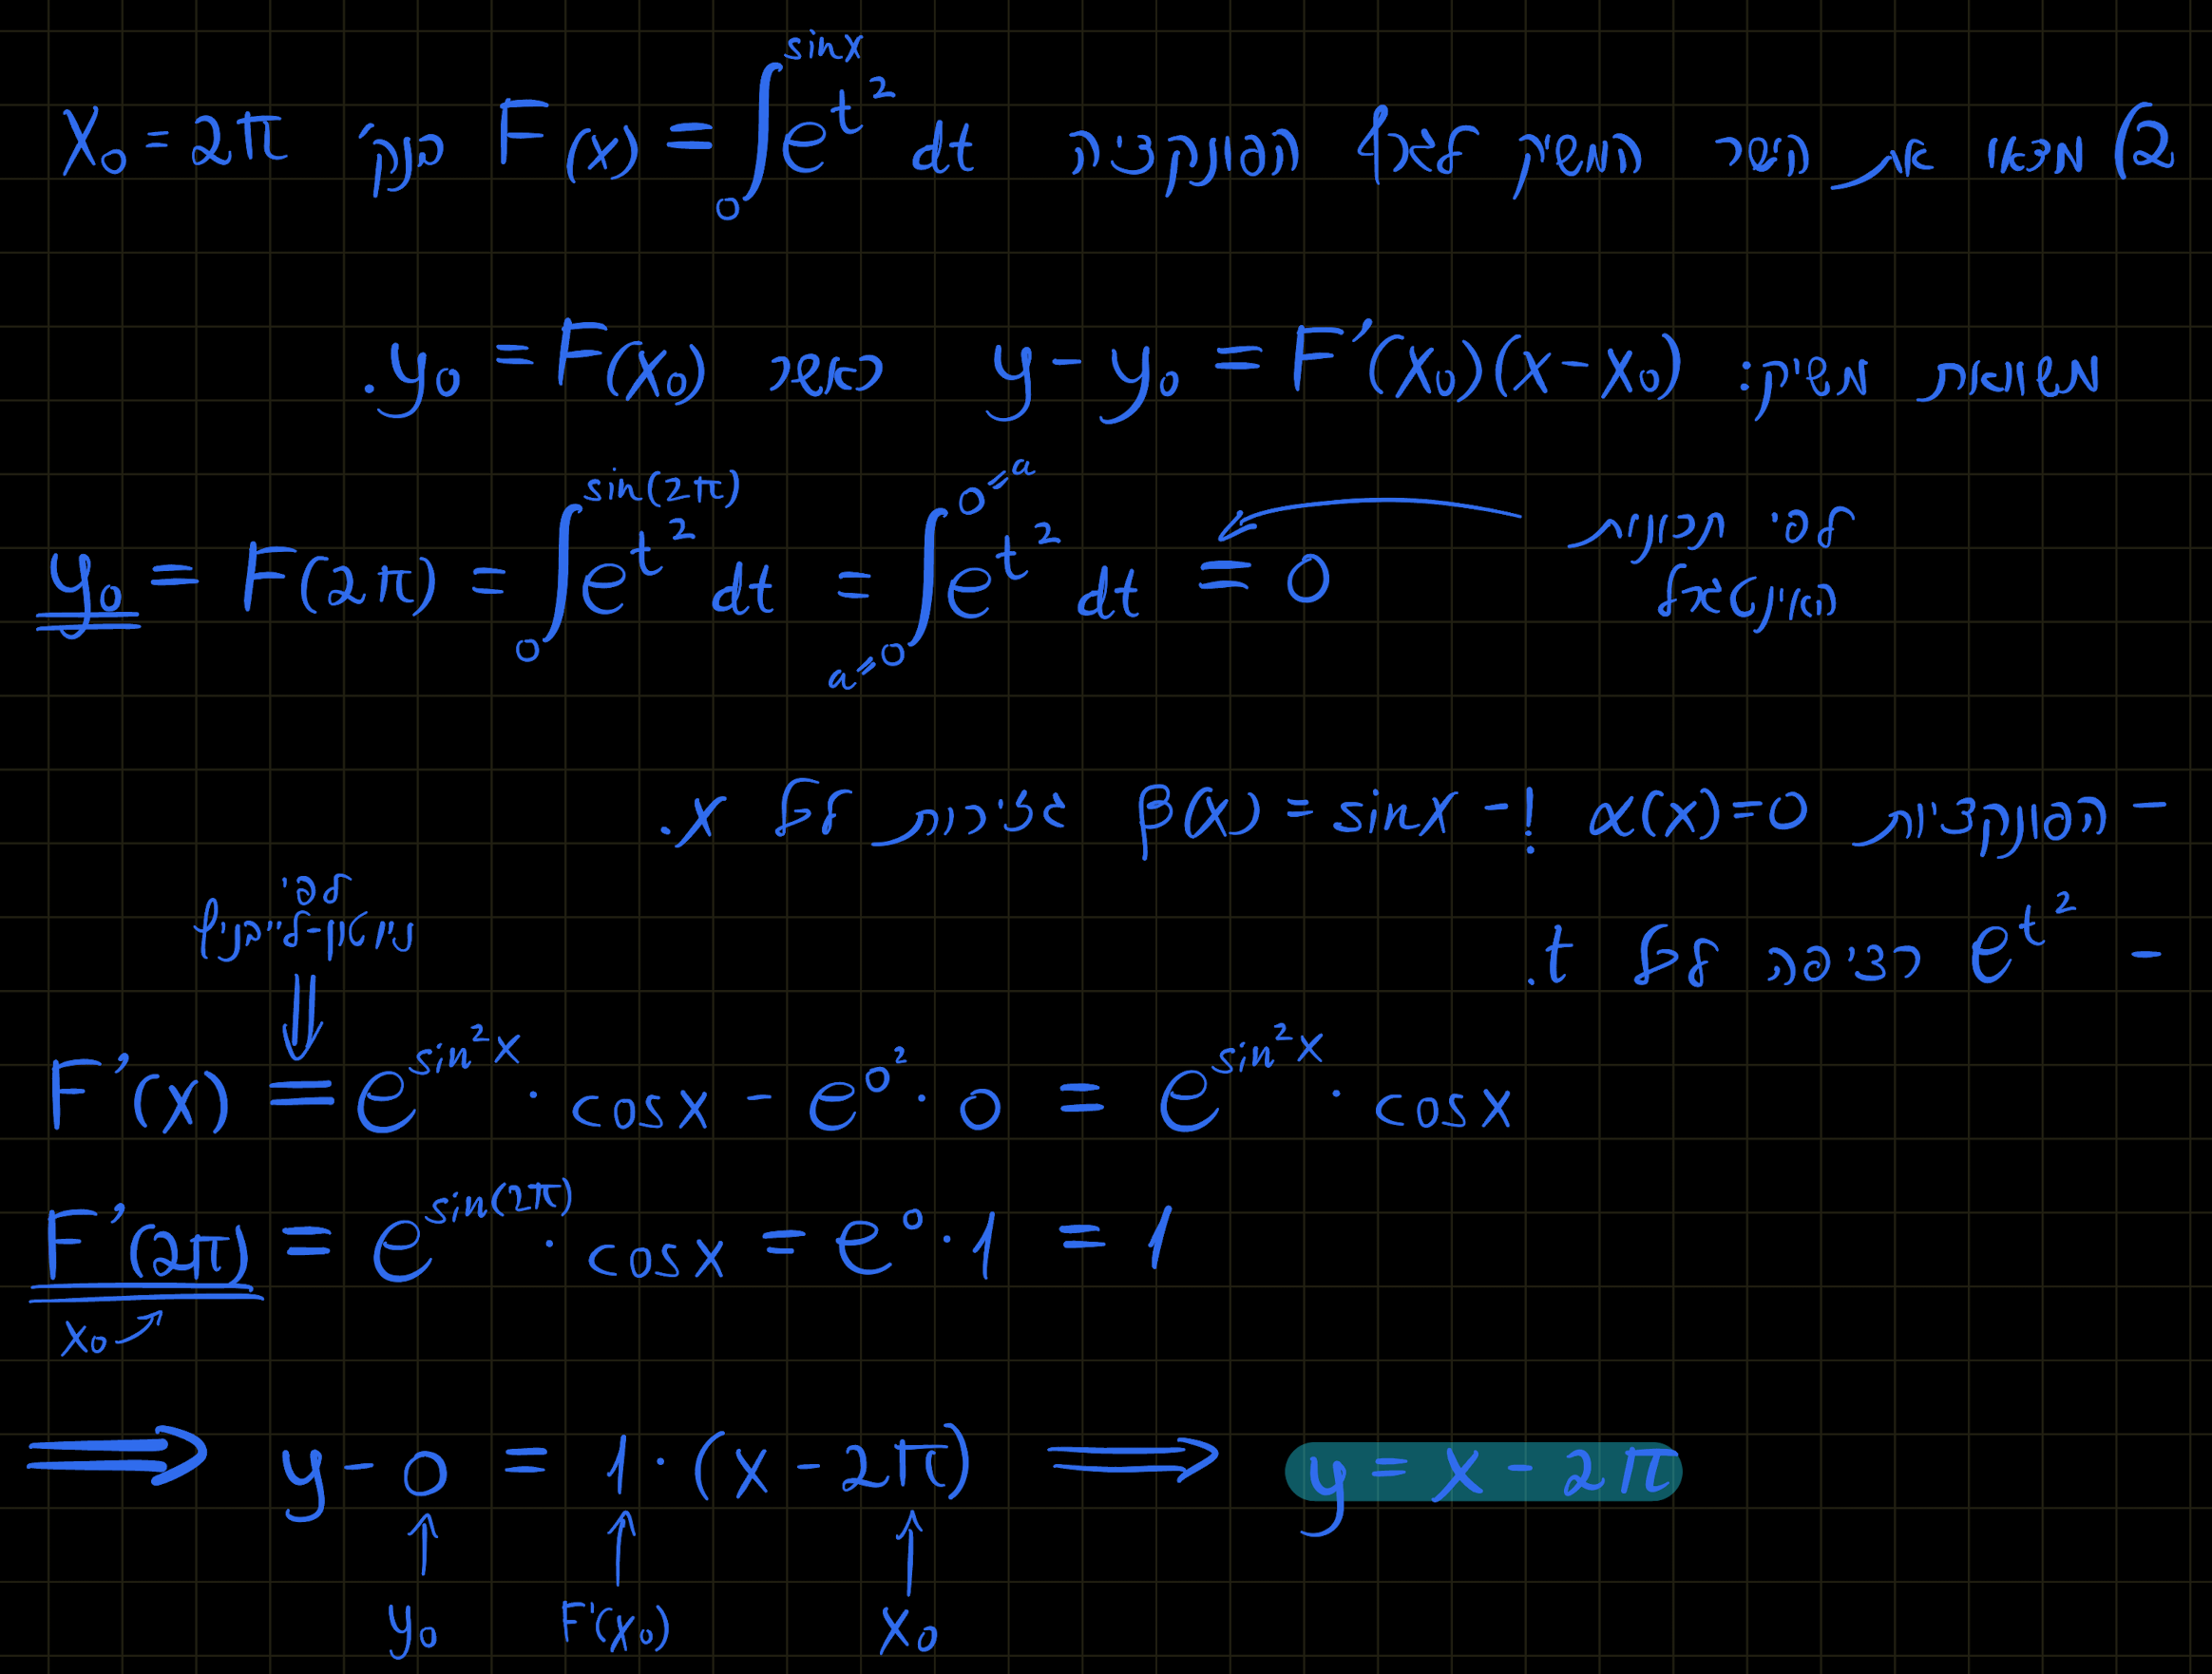 2) מצאו את הישר המשיק לגרף הפונקציה F(x) = ∫₀^{sinx} e^{t²} dt בנק' X₀ = 2π
משוואת משיק: y - y₀ = F'(x₀)(x - x₀) כאשר y₀ = F(x₀).
y₀ = F(2π) = ∫₀^{sin(2π)} e^{t²} dt = ∫_{a=0}^{0=a} e^{t²} dt = 0
לפי תכונות
האינטגרל
- הפונקציות α(x)=0 ו- β(x) = sinx גזירות לכל x.
- e^{t²} רציפה לכל t.
לפי
ניוטון-לייבניץ
⇓
F'(x) = e^{sin²x} · cosx - e^{0²} · 0 = e^{sin²x} · cosx
F'(2π) = e^{sin(2π)} · cosx = e⁰ · 1 = 1
x₀
⟹ y - 0 = 1 · (x - 2π) ⟹ y = x - 2π
↑ ↑ ↑
y₀ F'(x₀) x₀